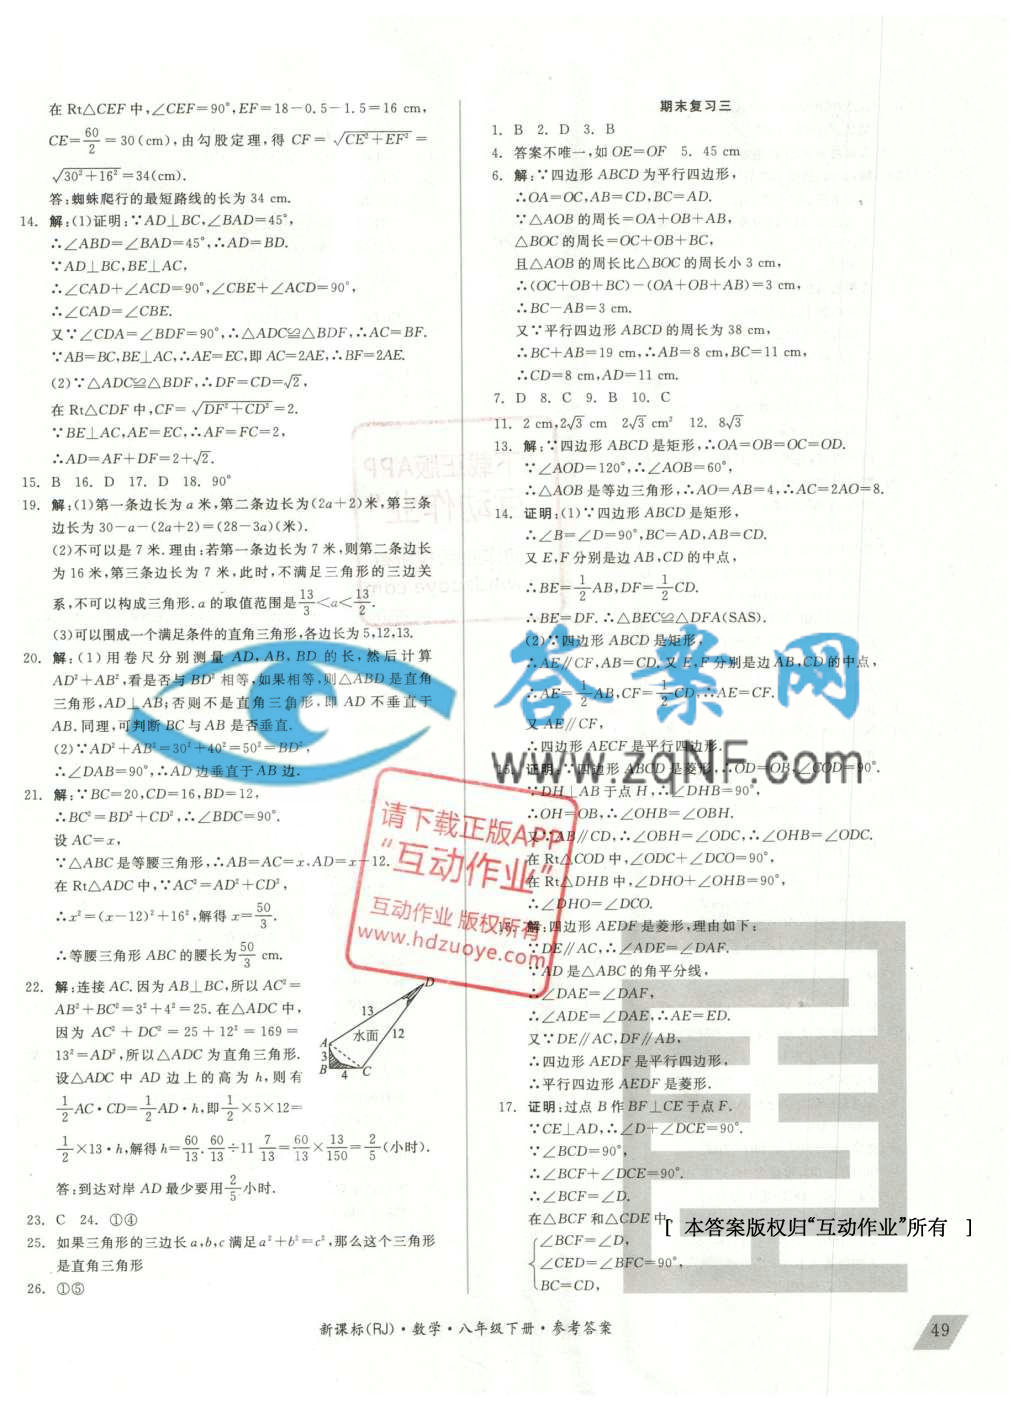 在 Rt△CEF 中,∠CEF=90°,EF=18-0.5-1.5=16 cm,
CE=60/2=30(cm),由勾股定理,得 CF=√(CE²+EF²)=
√(30²+16²)=34(cm).
答:蜘蛛爬行的最短路线的长为 34 cm.
14. 解:(1)证明:∵AD⊥BC,∠BAD=45°,
∴∠ABD=∠BAD=45°,∴AD=BD.
∵AD⊥BC,BE⊥AC,
∴∠CAD+∠ACD=90°,∠CBE+∠ACD=90°,
∴∠CAD=∠CBE.
又∵∠CDA=∠BDF=90°,∴△ADC≌△BDF,∴AC=BF.
∵AB=BC,BE⊥AC,∴AE=EC,即 AC=2AE,∴BF=2AE.
(2)∵△ADC≌△BDF,∴DF=CD=√2,
在 Rt△CDF 中,CF=√(DF²+CD²)=2.
∵BE⊥AC,AE=EC,∴AF=FC=2,
∴AD=AF+DF=2+√2.
15. B 16. D 17. D 18. 90°
19. 解:(1)第一条边长为 a 米,第二条边长为(2a+2)米,第三条
边长为 30-a-(2a+2)=(28-3a)(米).
(2)不可以是 7 米.理由:若第一条边长为 7 米,则第二条边长
为 16 米,第三条边长为 7 米,此时,不满足三角形的三边关
系,不可以构成三角形.a 的取值范围是13/3<a<13/2.
(3)可以围成一个满足条件的直角三角形,各边长为 5,12,13.
20. 解:(1)用卷尺分别测量 AD,AB,BD 的长,然后计算
AD²+AB²,看是否与 BD² 相等,如果相等,则△ABD 是直角
三角形,AD⊥AB;否则不是直角三角形,即 AD 不垂直于
AB.同理,可判断 BC 与 AB 是否垂直.
(2)∵AD²+AB²=30²+40²=50²=BD²,
∴∠DAB=90°,∴AD 边垂直于 AB 边.
21. 解:∵BC=20,CD=16,BD=12,
∴BC²=BD²+CD²,∴∠BDC=90°.
设 AC=x,
∵△ABC 是等腰三角形,∴AB=AC=x,AD=x-12.
在 Rt△ADC 中,∵AC²=AD²+CD²,
∴x²=(x-12)²+16²,解得 x=50/3.
∴等腰三角形 ABC 的腰长为50/3 cm.
22. 解:连接 AC.因为 AB⊥BC,所以 AC²=
AB²+BC²=3²+4²=25.在△ADC 中,
因为 AC²+DC²=25+12²=169=
13²=AD²,所以△ADC 为直角三角形.
设△ADC 中 AD 边上的高为 h,则有
1/2AC·CD=1/2AD·h,即1/2×5×12=
1/2×13·h,解得 h=60/13.60/13÷11 7/13=60/13×13/150=2/5(小时).
答:到达对岸 AD 最少要用2/5小时.
D
13
12
水面
A
3
B
4
C
23. C 24. ①④
25. 如果三角形的三边长 a,b,c 满足 a²+b²=c²,那么这个三角形
是直角三角形
26. ①⑤
期末复习三
1. B 2. D 3. B
4. 答案不唯一,如 OE=OF 5. 45 cm
6. 解:∵四边形 ABCD 为平行四边形,
∴OA=OC,AB=CD,BC=AD.
∵△AOB 的周长=OA+OB+AB,
△BOC 的周长=OC+OB+BC,
且△AOB 的周长比△BOC 的周长小 3 cm,
∴(OC+OB+BC)-(OA+OB+AB)=3 cm,
∴BC-AB=3 cm.
又∵平行四边形 ABCD 的周长为 38 cm,
∴BC+AB=19 cm,∴AB=8 cm,BC=11 cm,
∴CD=8 cm,AD=11 cm.
7. D 8. C 9. B 10. C
11. 2 cm,2√3 cm 2√3 cm² 12. 8√3
13. 解:∵四边形 ABCD 是矩形,∴OA=OB=OC=OD.
∵∠AOD=120°,∴∠AOB=60°,
∴△AOB 是等边三角形,∴AO=AB=4,∴AC=2AO=8.
14. 证明:(1)∵四边形 ABCD 是矩形,
∴∠B=∠D=90°,BC=AD,AB=CD.
又 E,F 分别是边 AB,CD 的中点,
∴BE=1/2AB,DF=1/2CD.
∴BE=DF.∴△BEC≌△DFA(SAS).
(2)∵四边形 ABCD 是矩形,
∴AE∥CF,AB=CD.又 E,F 分别是边 AB,CD 的中点,
∴AE=1/2AB,CF=1/2CD,∴AE=CF.
又 AE∥CF,
∴四边形 AECF 是平行四边形.
15. 证明:∵四边形 ABCD 是菱形,∴OD=OB,∠COD=90°.
∵DH⊥AB 于点 H,∴∠DHB=90°,
∴OH=OB,∴∠OHB=∠OBH.
又∵AB∥CD,∴∠OBH=∠ODC,∴∠OHB=∠ODC.
在 Rt△COD 中,∠ODC+∠DCO=90°,
在 Rt△DHB 中,∠DHO+∠OHB=90°,
∴∠DHO=∠DCO.
16. 解:四边形 AEDF 是菱形,理由如下:
∵DE∥AC,∴∠ADE=∠DAF.
∵AD 是△ABC 的角平分线,
∴∠DAE=∠DAF,
∴∠ADE=∠DAE,∴AE=ED.
又∵DE∥AC,DF∥AB,
∴四边形 AEDF 是平行四边形,
∴平行四边形 AEDF 是菱形.
17. 证明:过点 B 作 BF⊥CE 于点 F.
∵CE⊥AD,∴∠D+∠DCE=90°.
∵∠BCD=90°,
∴∠BCF+∠DCE=90°.
∴∠BCF=∠D.
在△BCF 和△CDE 中,
∠BCF=∠D,
∠CED=∠BFC=90°,
BC=CD,
答案网
www.zqNF.com
请下载正版APP
“互动作业”
互动作业 版权所有
www.hdzuoye.com
[ 本答案版权归“互动作业”所有 ]
新课标(RJ)·数学·八年级下册·参考答案
49